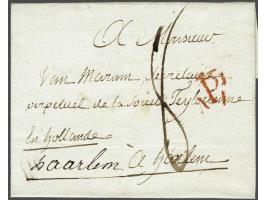 A Monsieur
Van Marum Secretaire
perpetuel de la Societé Teylerienne
En hollande
haarlem à harlem
P